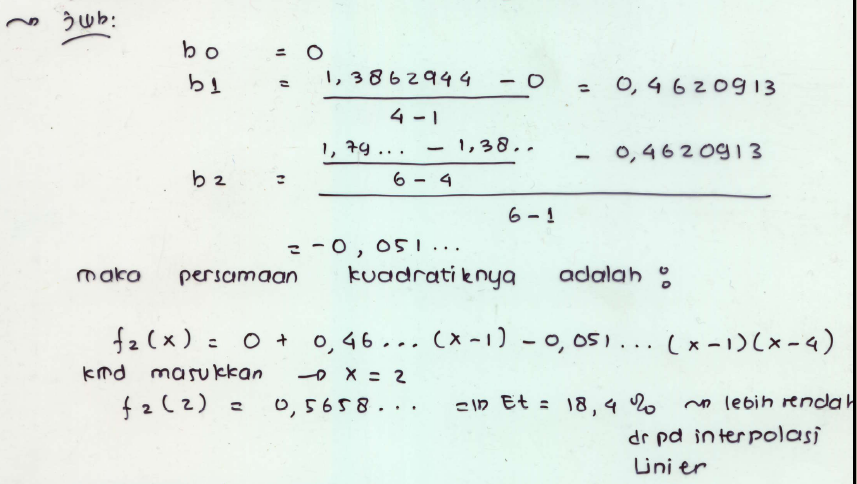 ~> Jwb:
b0 = 0
b1 = 1,3862944 - 0 / 4 - 1 = 0,4620913
b2 = 1,79... - 1,38.. / 6 - 4 - 0,4620913 / 6 - 1
= -0,051...
maka persamaan kuadratiknya adalah :
f2(x) = 0 + 0,46... (x-1) - 0,051... (x-1)(x-4)
kmd masukkan → x = 2
f2(2) = 0,5658... => Et = 18,4 % ~> lebih rendah
dr pd interpolasi
Linier